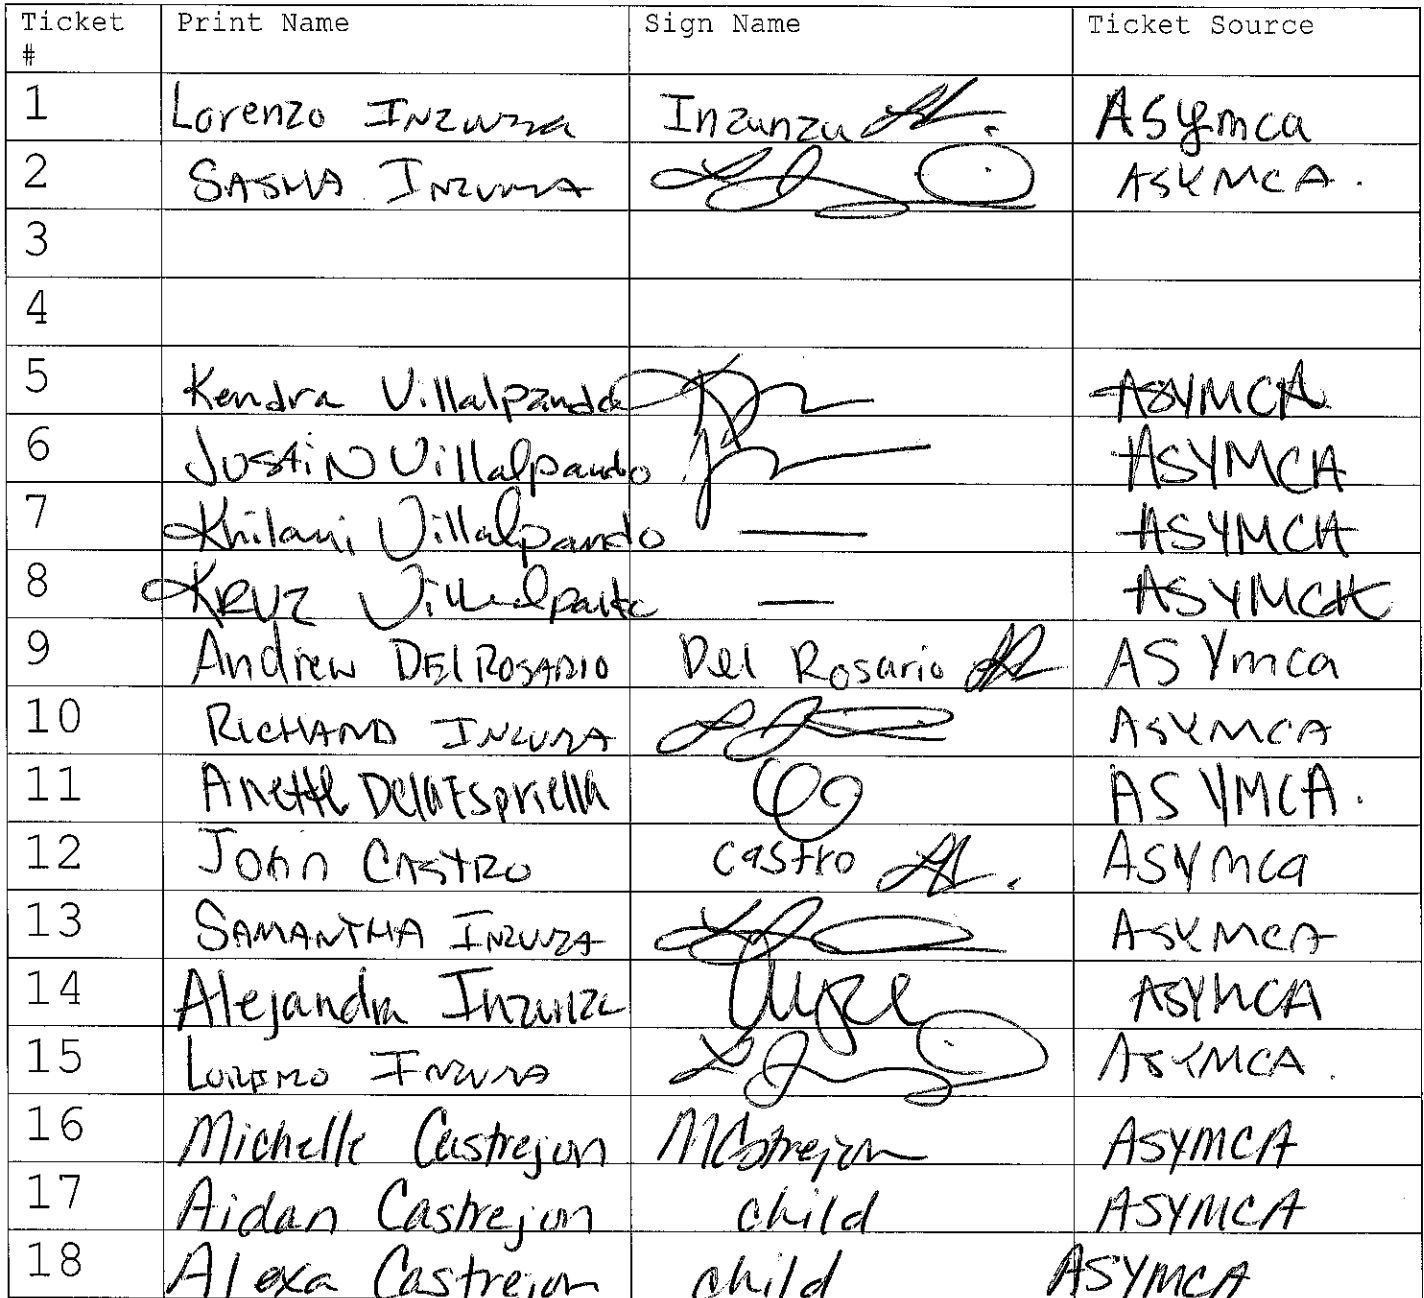 Ticket # Print Name Sign Name Ticket Source
1 Lorenzo Inzunza Inzunza ASymca
2 SASHA INZUNZA ASYMCA.
3
4
5 Kendra Villalpando ASYMCA
6 Justin Villalpando ASYMCA
7 Khilani Villalpando — ASYMCA
8 KRUZ Villalpando — ASYMCA
9 Andrew DEL ROSARIO Del Rosario ASYmca
10 RICHARD INZUNZA ASYMCA
11 Anette DelaEspriella ASYMCA.
12 John CASTRO Castro ASYmca
13 SAMANTHA INZUNZA ASYMCA
14 Alejandra Inzunza ASYMCA
15 LORENZO INZUNZA ASYMCA.
16 Michelle Castrejon MCastrejon ASYMCA
17 Aidan Castrejon child ASYMCA
18 Alexa Castrejon child ASYMCA